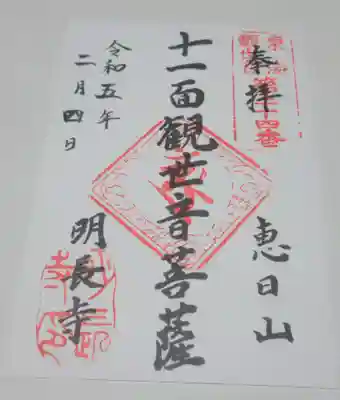 奉拝
恵日山
十一面観世音菩薩
令和五年
二月四日
明長寺